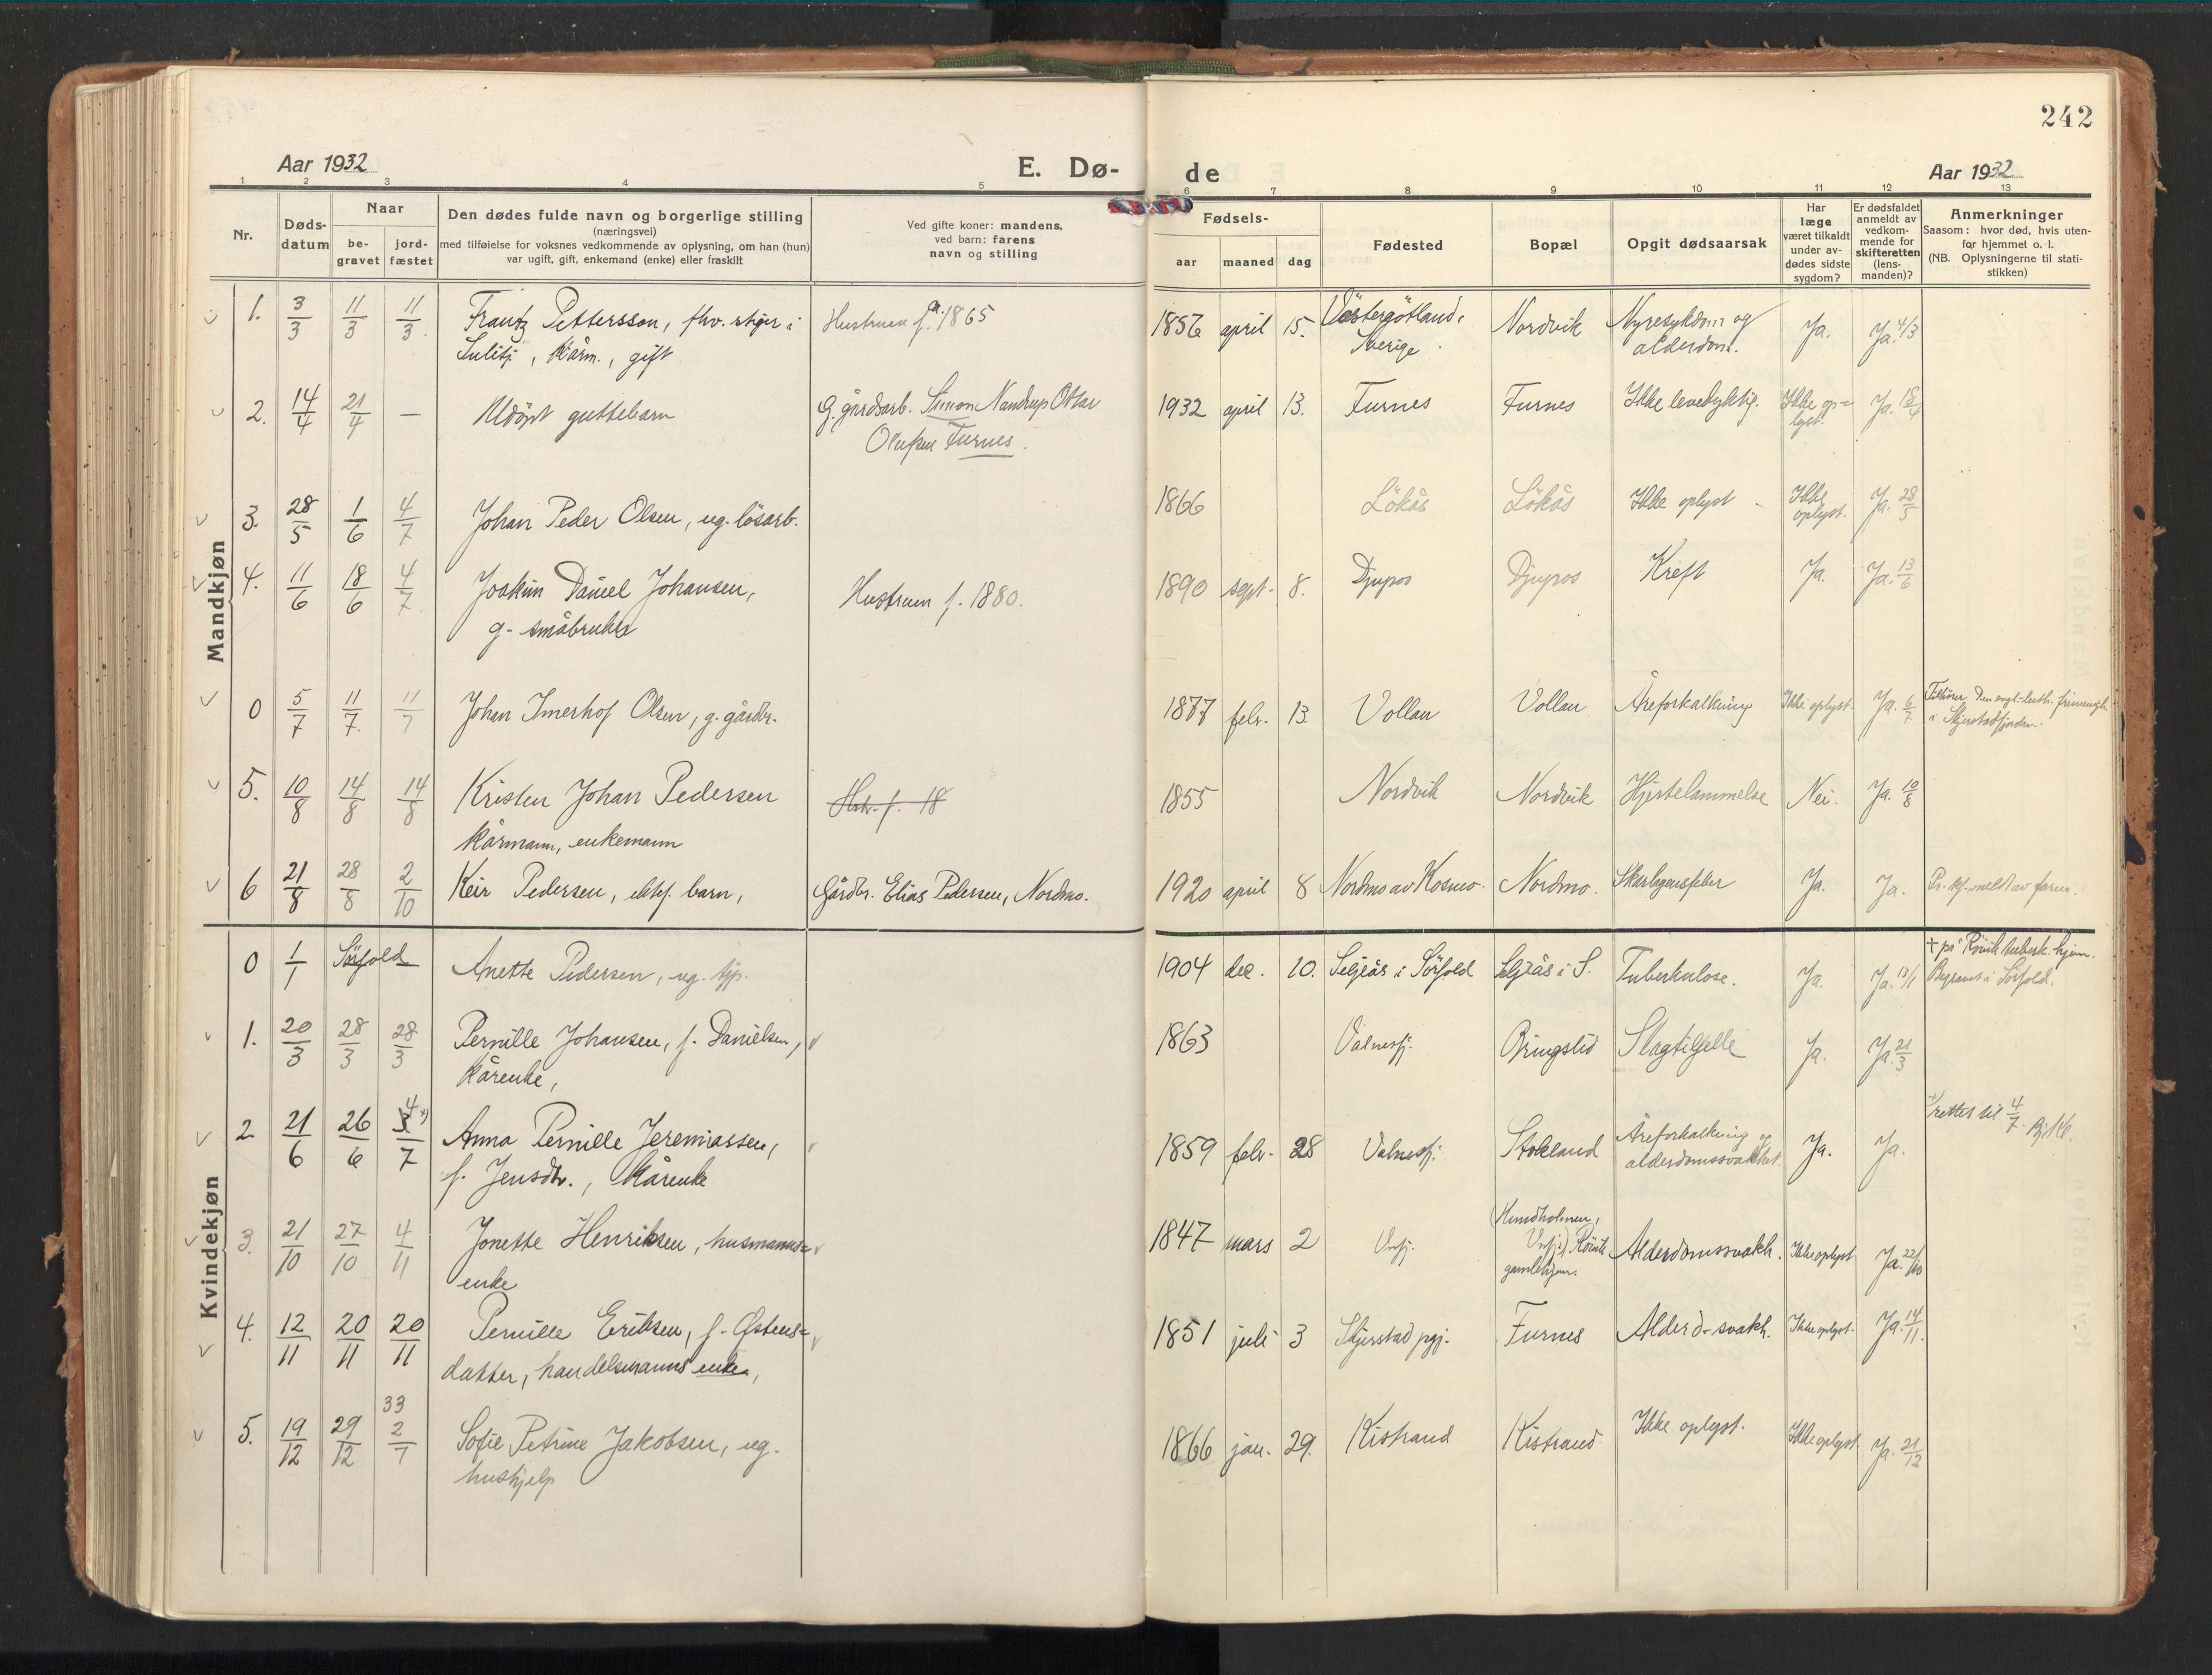 242
Aar 1932
E. Dø-
de
Aar 1932
1 2 3 4 5 6 7 8 9 10 11 12 13
Nr.
Døds-
datum
Naar
be-
gravet
jord-
fæstet
Den dødes fulde navn og borgerlige stilling
(næringsvei)
med tilføielse for voksnes vedkommende av oplysning, om han (hun)
var ugift, gift, enkemand (enke) eller fraskilt
Ved gifte koner: mandens,
ved barn: farens
navn og stilling
Fødsels-
aar
maaned
dag
Fødested
Bopæl
Opgit dødsaarsak
Har
læge
været tilkaldt
under av-
dødes sidste
sygdom?
Er dødsfaldet
anmeldt av
vedkom-
mende for
skifteretten
(lens-
manden)?
Anmerkninger
Saasom: hvor død, hvis uten-
for hjemmet o. l.
(NB. Oplysningerne til stati-
stikken)
Mandkjøn
1. 3/3 11/3 11/3 Frantz Pettersson, fhv. stiger i Hustruen f. 1865 1856 april 15. Västergötland, Nordvik Nyresykdom og Ja. Ja. 4/3
Sulitj., kårm., gift Sverige alderdom.
2. 14/4 21/4 — Udöpt guttebarn G. gårdsarb. Simon Nandrup Ottar 1932 april 13. Furnes Furnes Ikke levedyktig. Ikke op= Ja. 18/4
Olufsen Furnes. lyst.
3. 28/5 1/6 4/7 Johan Peder Olsen, ug. lösarb. 1866 Lökås Lökås Ikke oplyst Ikke Ja. 28/5
oplyst.
4. 11/6 18/6 4/7 Joakim Daniel Johansen, Hustruen f. 1880. 1890 sept. 8. Djupos Djupos Kreft Ja. Ja. 13/6
g. småbruker
0 5/7 11/7 11/7 Johan Imerhof Olsen, g. gårdbr. 1877 febr. 13. Vollan Vollan Åreforkalkning Ikke oplyst. Ja. 6/7 Tilhörer Den evgl.-luth. frimengh.
i Skjerstadfjorden.
5. 10/8 14/8 14/8 Kristen Johan Pedersen Hstr. f. 18 1855 Nordvik Nordvik Hjertelammelse Nei. Ja. 10/8
kårmann, enkemann
6 21/8 28/8 2/10 Keir Pedersen, ektef. barn, Gårdbr. Elias Pedersen, Nordmo. 1920 april 8 Nordmo av Kosmo. Nordmo. Skarlagensfeber Ja. Ja. Pr. tlf. meldt av faren.
Kvindekjøn
0 1/1 Sörfold Anette Pedersen, ug. tjp. 1904 dec. 10. Seljeås i Sörfold Seljeås i S. Tuberkulose. Ja. Ja. 13/1 † på Rövik tuberk. hjem.
Begravet i Sörfold.
1. 20/3 28/3 28/3 Pernille Johansen, f. Danielsen, 1863 Valnesfj. Bringslid Slagtilfelle Ja. Ja. 21/3
kårenke,
2. 21/6 26/6 4/7 x) Anna Pernille Jeremiassen, 1859 febr. 28 Valnesfj. Stokland Åreforkalkning og Ja. Ja. x) rettet til 4/7.
f. Jensdtr., kårenke alderdomssvakhet.
3. 21/10 27/10 4/11 Jonette Henriksen, husmanns= 1847 mars 2 Vnfj. (Hundholmen, Alderdomssvakh. Ikke oplyst Ja. 22/10
enke Vnfj.) Rövik
gamlehjem.
4. 12/11 20/11 20/11 Pernille Eriksen, f. Østens= 1851 juli 3 Skjerstad pgj. Furnes Alderd-svakh. Ikke oplyst. Ja. 14/11.
datter, handelsmanns enke,
33
5. 19/12 29/12 2/7 Sofie Petrine Jakobsen, ug. 1866 jan. 29. Kistrand Kistrand Ikke oplyst. Ikke oplyst. Ja. 21/12
hushjelp